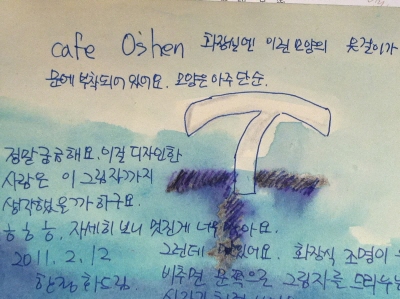 cafe Oshen 화장실엔 이런 모양의 옷걸이가
문에 부착되어 있어요. 모양은 아주 단순.
정말 궁금해요. 이걸 디자인한
사람은 이 그림자까지
생각했을까 하구요.
흐흐흐, 자세히 보니 멋진게 아요.
2011. 2. 12
한장 하드림
그런데 있어요. 화장실 조명이
비추면 문쪽으로 그림자를 드리우는